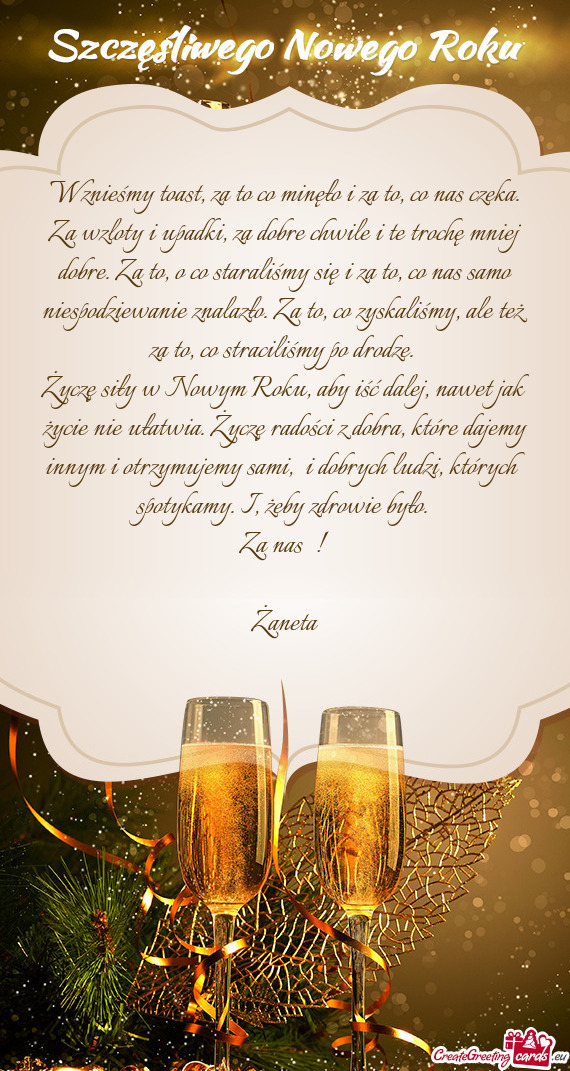 Szczęśliwego Nowego Roku
Wznieśmy toast, za to co minęło i za to, co nas czeka.
Za wzloty i upadki, za dobre chwile i te trochę mniej
dobre. Za to, o co staraliśmy się i za to, co nas samo
niespodziewanie znalazło. Za to, co zyskaliśmy, ale też
za to, co straciliśmy po drodze.
Życzę siły w Nowym Roku, aby iść dalej, nawet jak
życie nie ułatwia. Życzę radości z dobra, które dajemy
innym i otrzymujemy sami,  i dobrych ludzi, których
spotykamy. I, żeby zdrowie było.
Za nas  !
Żaneta
CreateGreetingcards.eu